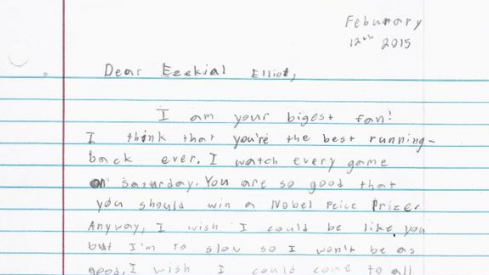 Febunary
12th 2015
Dear Ezekial Elliot,
I am your bigest fan!
I think that you're the best running-
back ever. I watch every game
on saturday. You are so good that
you should win a Nobel Peice Prize.
Anyway, I wish I could be like you
but I'm to slow so I won't be as
good. I wish I could come to all